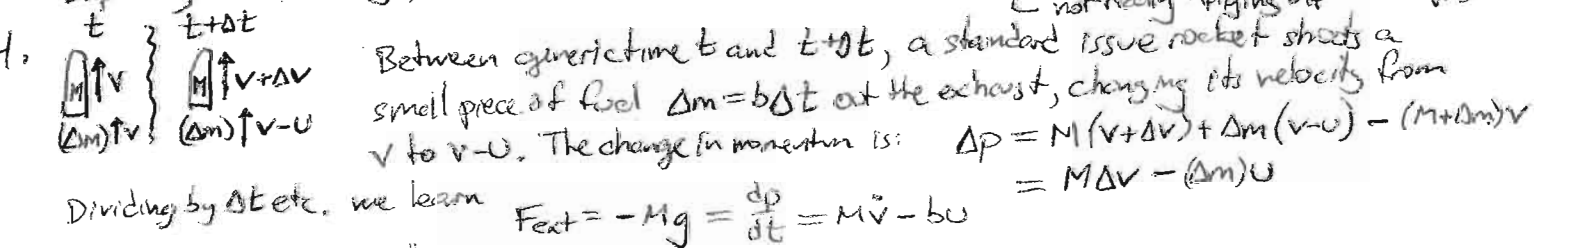 t t+Δt
1. Between generic time t and t+Δt, a standard issue rocket shoots a
M ↑V M ↑V+ΔV small piece of fuel Δm=bΔt out the exhaust, changing its velocity from
(Δm)↑V (Δm)↑V-U V to V-U. The change in momentum is: Δp = M(V+ΔV)+Δm(V-U) - (M+Δm)V
= MΔV - (Δm)U
Dividing by Δt etc. we learn
Fext = -Mg = dp/dt = Mv̇ - bU